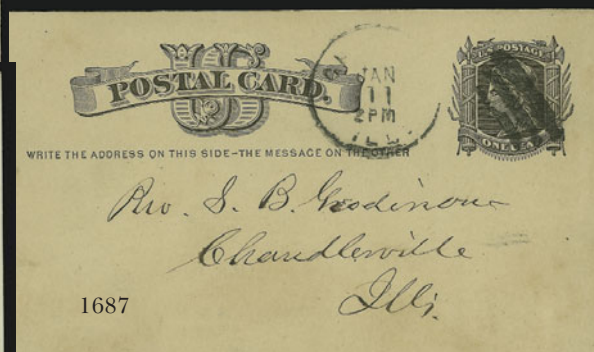 US
POSTAL CARD.
JAN
11
2PM
ILL.
U.S. POSTAGE
ONE CENT
WRITE THE ADDRESS ON THIS SIDE-THE MESSAGE ON THE OTHER
Rev. S. B.
Chandlerville
Ills.
1687